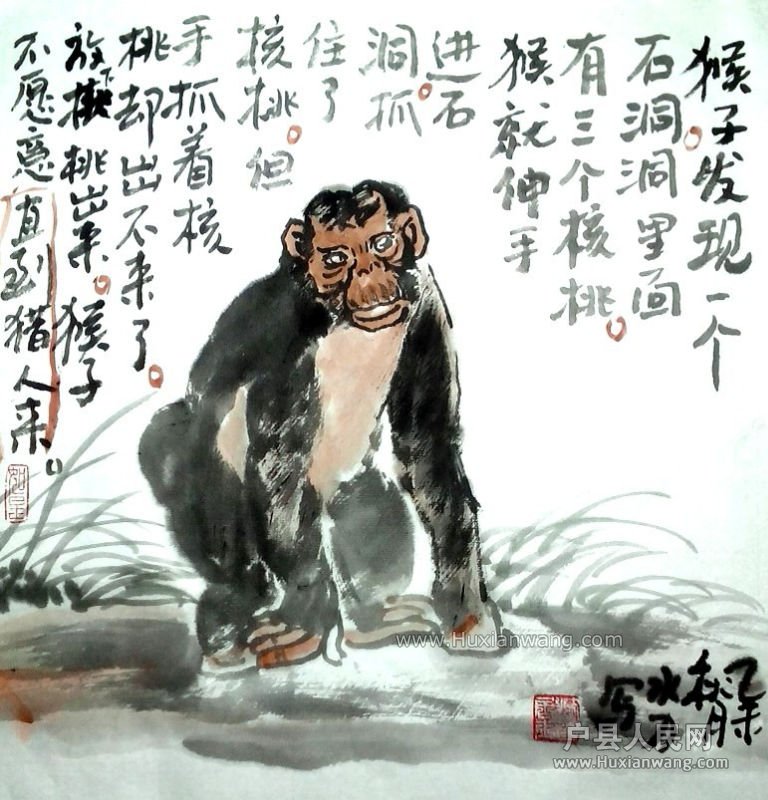 猴子发现一个
石洞洞里面
有三个核桃。
猴就伸手
进石
洞。抓
住了
核桃。但
手抓着核
桃却出不来了。
放下核桃出来。猴子
不愿意直到猎人来。
乙未
秋月
水
写
www.Huxianwang.com
户县人民网
www.Huxianwang.com